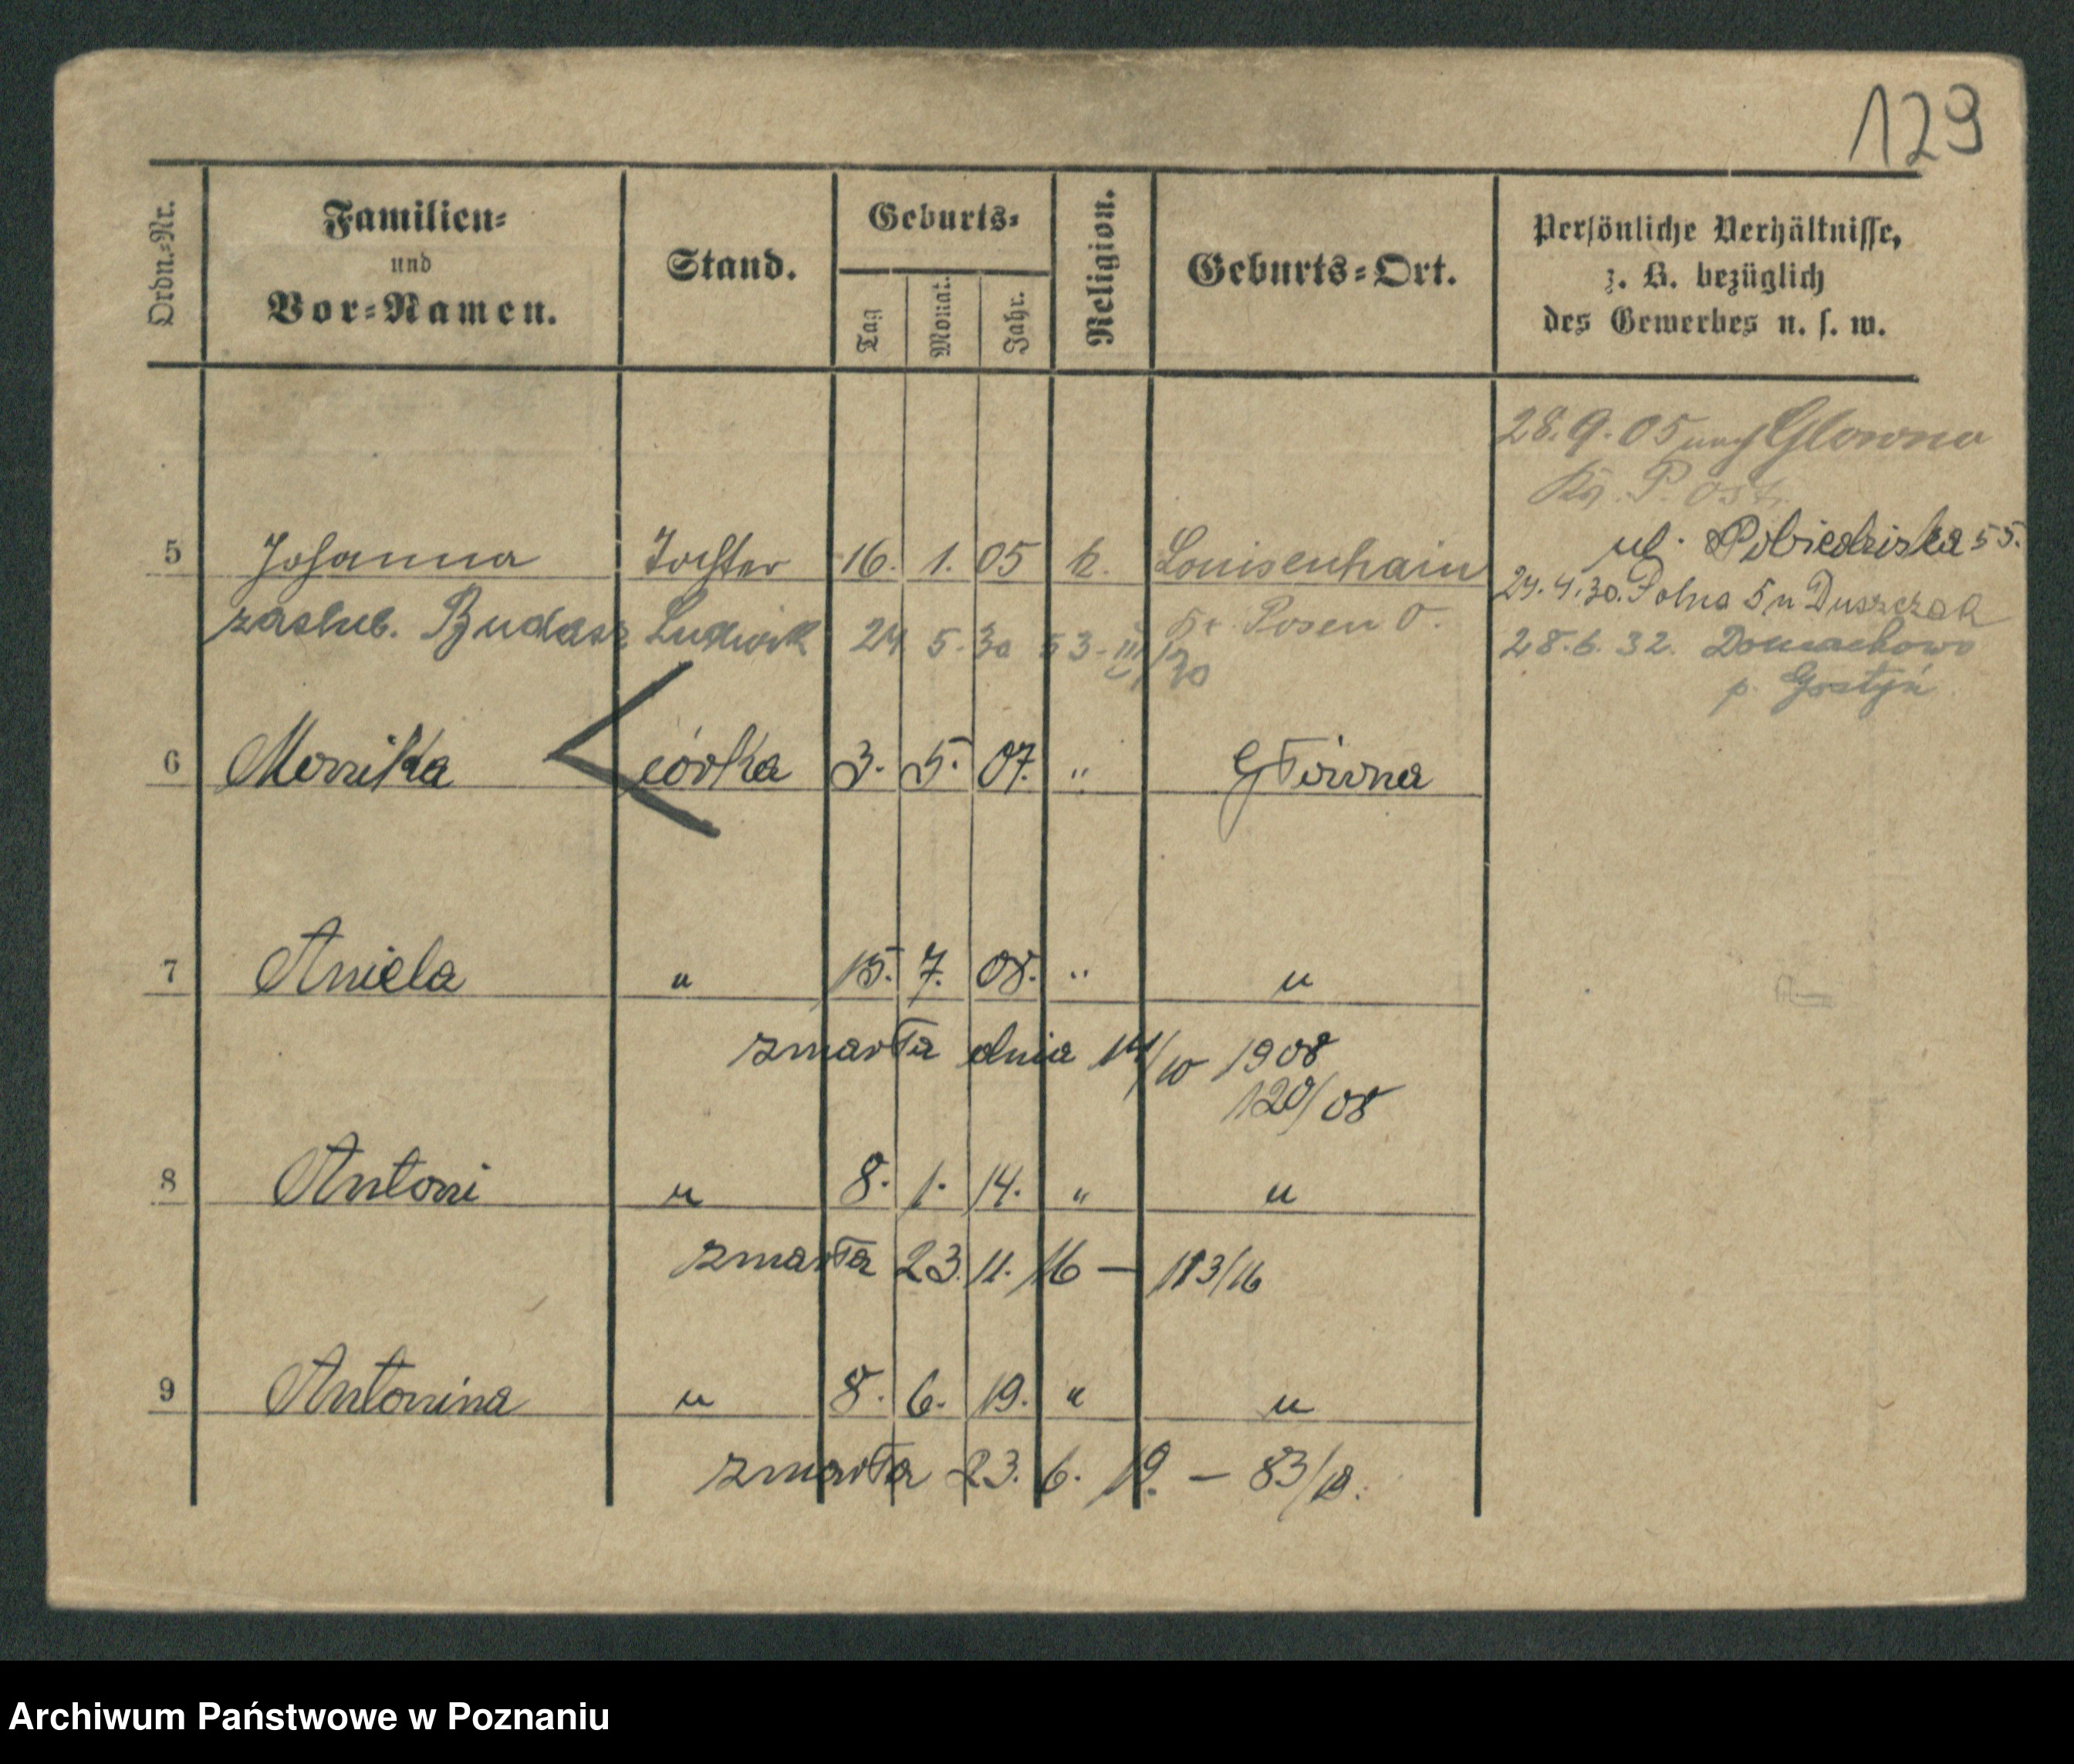 129
Ordn.=Nr.
Familien=
und
Vor=Namen.
Stand.
Geburts=
Tag
Monat.
Jahr.
Religion.
Geburts=Ort.
Persönliche Verhältnisse,
z. B. bezüglich
des Gewerbes u. s. w.
28.9.05 nach Glowno
Kr. P. Ost.
5 Johanna Tochter 16. 1. 05 k. Louisenhain
ul. Pobiedziska 55.
Kr. Posen O.
24.4.30. Polna 5 u Duszczak
zaślub. Budasz Ludwik 24 5. 30 53-III/30
28.6.32. Domachowo
p. Gostyń
6 Monika córka 3. 5. 07. " Główna
7 Aniela " 15. 7. 08. " "
zmarła dnia 14/10 1908
120/08
8 Antoni " 8. 1. 14. " "
zmarła 23. 11. 16 — 183/16
9 Antonina " 8. 6. 19. " "
zmarła 23. 6. 19. — 83/19.
Archiwum Państwowe w Poznaniu